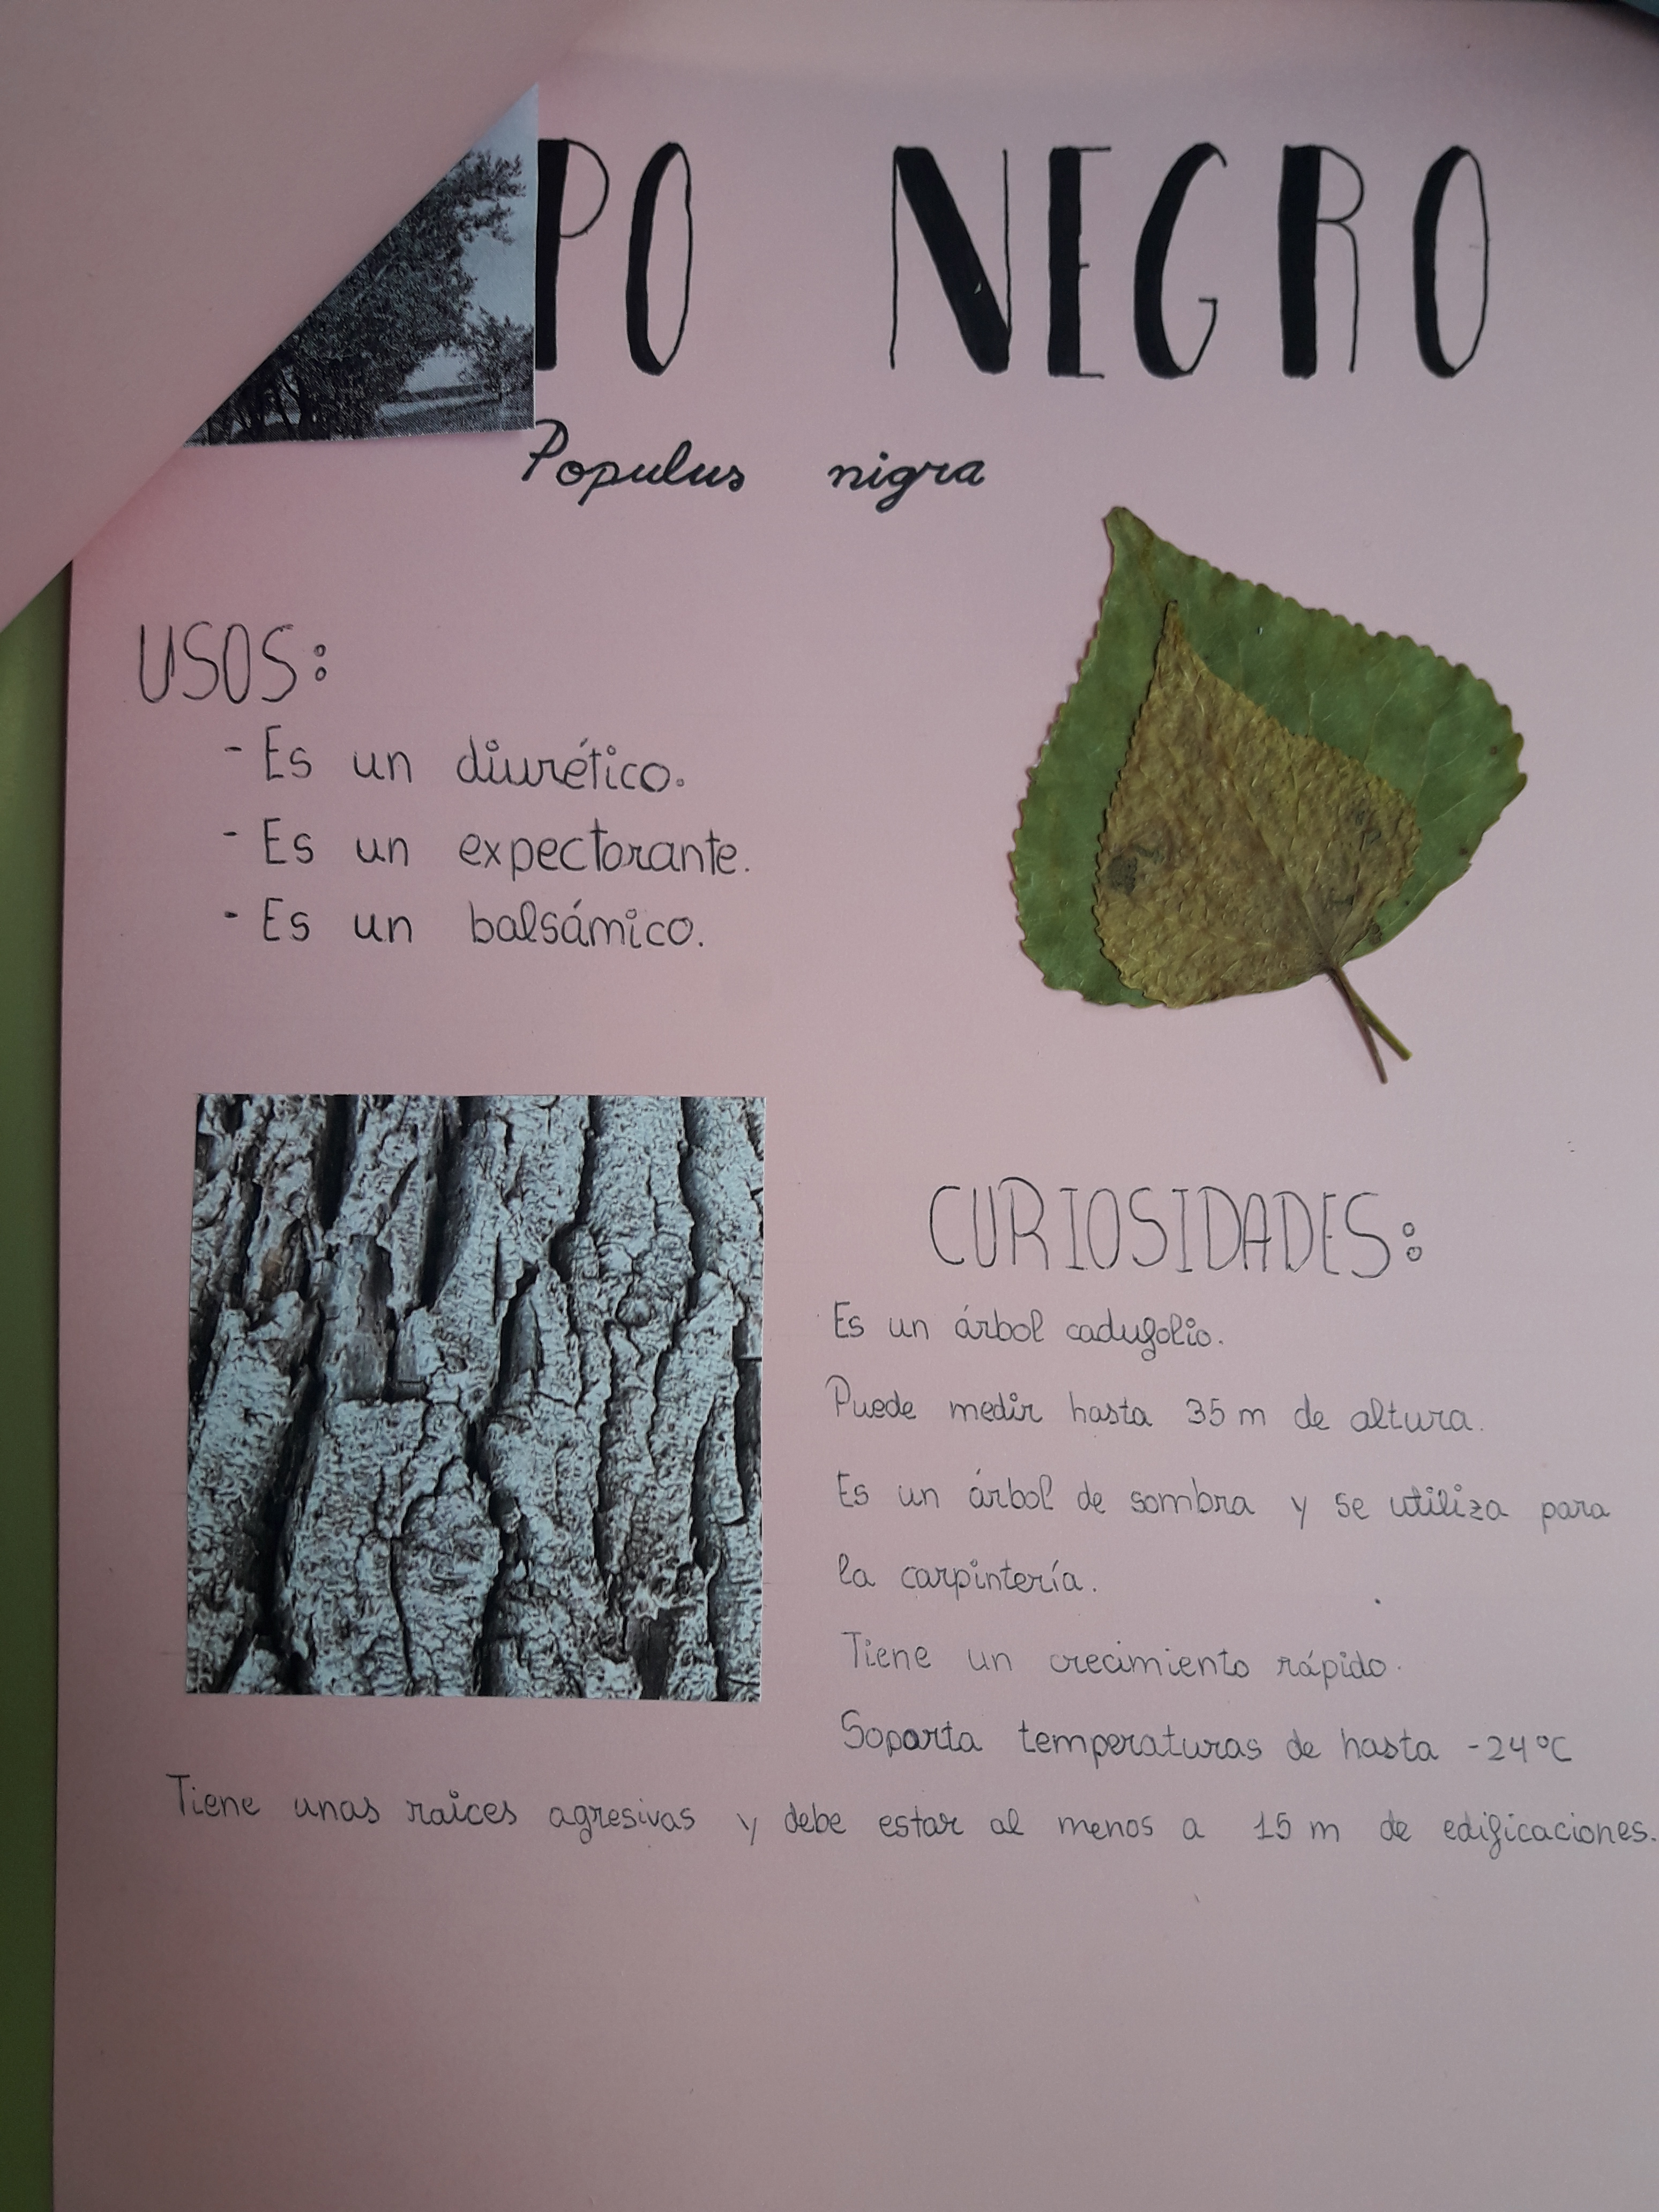 PO NEGRO
Populus nigra
USOS:
- Es un diurético.
- Es un expectorante.
- Es un balsámico.
CURIOSIDADES:
Es un árbol cadufolio.
Puede medir hasta 35 m de altura.
Es un árbol de sombra y se utiliza para
la carpintería.
Tiene un crecimiento rápido.
Soporta temperaturas de hasta -24ºC
Tiene unas raices agresivas y debe estar al menos a 15 m de edificaciones.